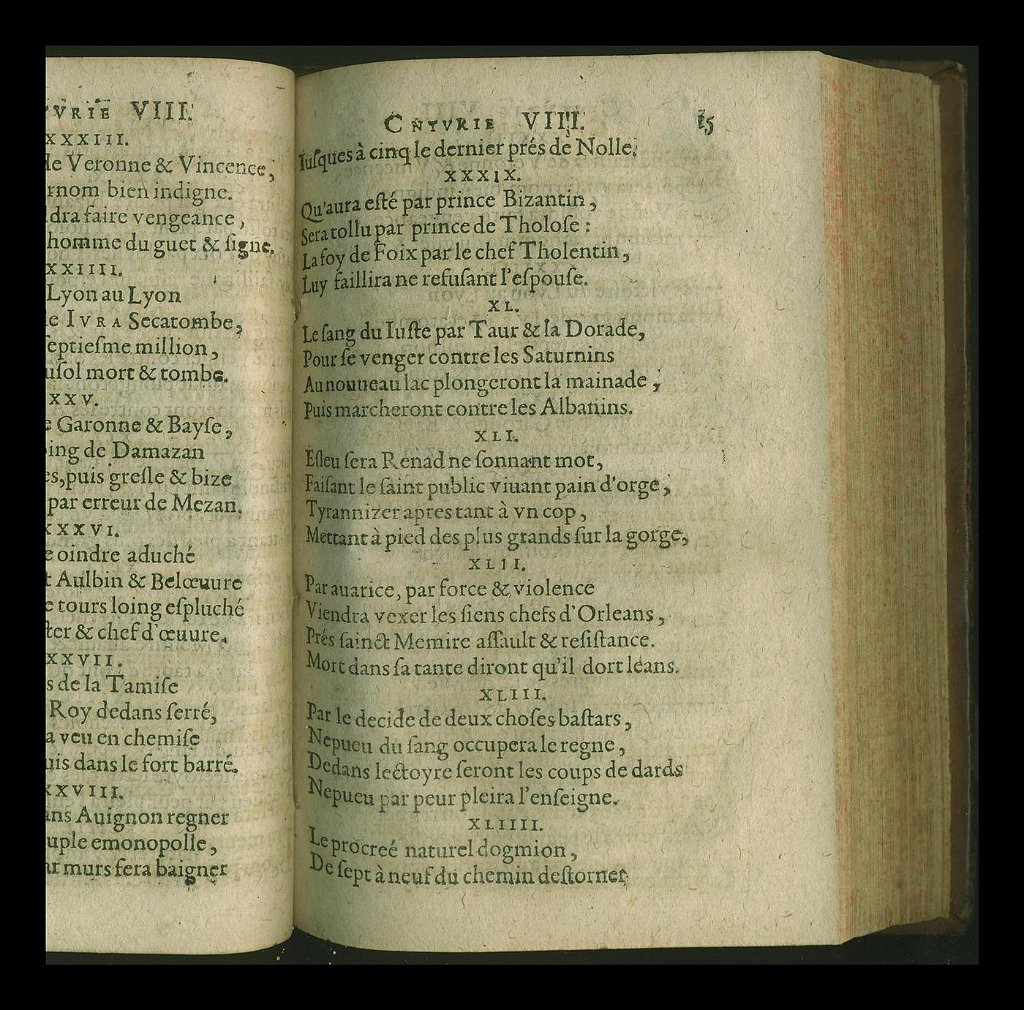 VRIE VIII.
XXXIII.
le Veronne & Vincence,
rnom bien indigne.
dra faire vengeance,
homme du guet & ſigne.
XXIIII.
Lyon au Lyon
e IVRA Secatombe,
eptieſme million,
uſol mort & tombe.
XXV.
e Garonne & Bayſe,
ing de Damazan
es, puis greſle & bize
par erreur de Mezan.
XXXVI.
e oindre aduché
t Aulbin & Belœuure
e tours loing eſpluché
ter & chef d'œuure.
XXVII.
s de la Tamiſe
Roy dedans ſerré,
a veu en chemiſe
uis dans le fort barré.
XXVIII.
ans Auignon regner
uple emonopolle,
ar murs fera baigner
CNTVRIE VIII. 15
Iuſques à cinq le dernier prés de Nolle.
XXXIX.
Qu'aura eſté par prince Bizantin,
Sera tollu par prince de Tholoſe:
La foy de Foix par le chef Tholentin,
Luy faillira ne refuſant l'eſpouſe.
XL.
Le ſang du Iuſte par Taur & la Dorade,
Pour ſe venger contre les Saturnins
Au nouueau lac plongeront la mainade,
Puis marcheront contre les Albanins.
XLI.
Eſleu ſera Renad ne ſonnant mot,
Faiſant le ſaint public viuant pain d'orge,
Tyrannizer apres tant à vn cop,
Mettant à pied des plus grands ſur la gorge,
XLII.
Par auarice, par force & violence
Viendra vexer les ſiens chefs d'Orleans,
Prés ſainct Memire aſſault & reſiſtance.
Mort dans ſa tante diront qu'il dort leans.
XLIII.
Par le decide de deux choſes baſtars,
Nepueu du ſang occupera le regne,
Dedans lectoyre ſeront les coups de dards
Nepueu par peur pleira l'enſeigne.
XLIIII.
Le procreé naturel dogmion,
De ſept à neuf du chemin deſtorner